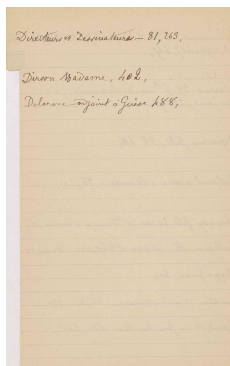 Directeurs et Dessinateurs — 81, 263.
Dirson Madame, 402.
Delorme adjoint à Guise 488,